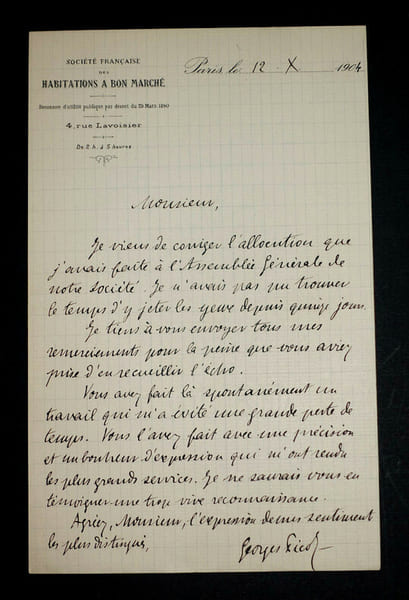 SOCIÉTÉ FRANÇAISE
DES
HABITATIONS A BON MARCHÉ
Reconnue d'utilité publique par décret du 29 Mars 1890
4, rue Lavoisier
De 2 h. à 5 heures
Paris le 12 X 1904
Monsieur,
Je viens de corriger l'allocution que
j'avais faite à l'Assemblée Générale de
notre Société. Je n'avais pas pu trouver
le temps d'y jeter les yeux depuis quinze jours.
Je tiens à vous envoyer tous mes
remerciements pour la peine que vous aviez
prise d'en recueillir l'écho.
Vous avez fait là spontanément un
travail qui m'a évité une grande perte de
temps. Vous l'avez fait avec une précision
et un bonheur d'expression qui m'ont rendu
les plus grands services. Je ne saurais vous en
témoigner une trop vive reconnaissance.
Agréez, Monsieur, l'expression de mes sentiments
les plus distingués,
Georges Picot